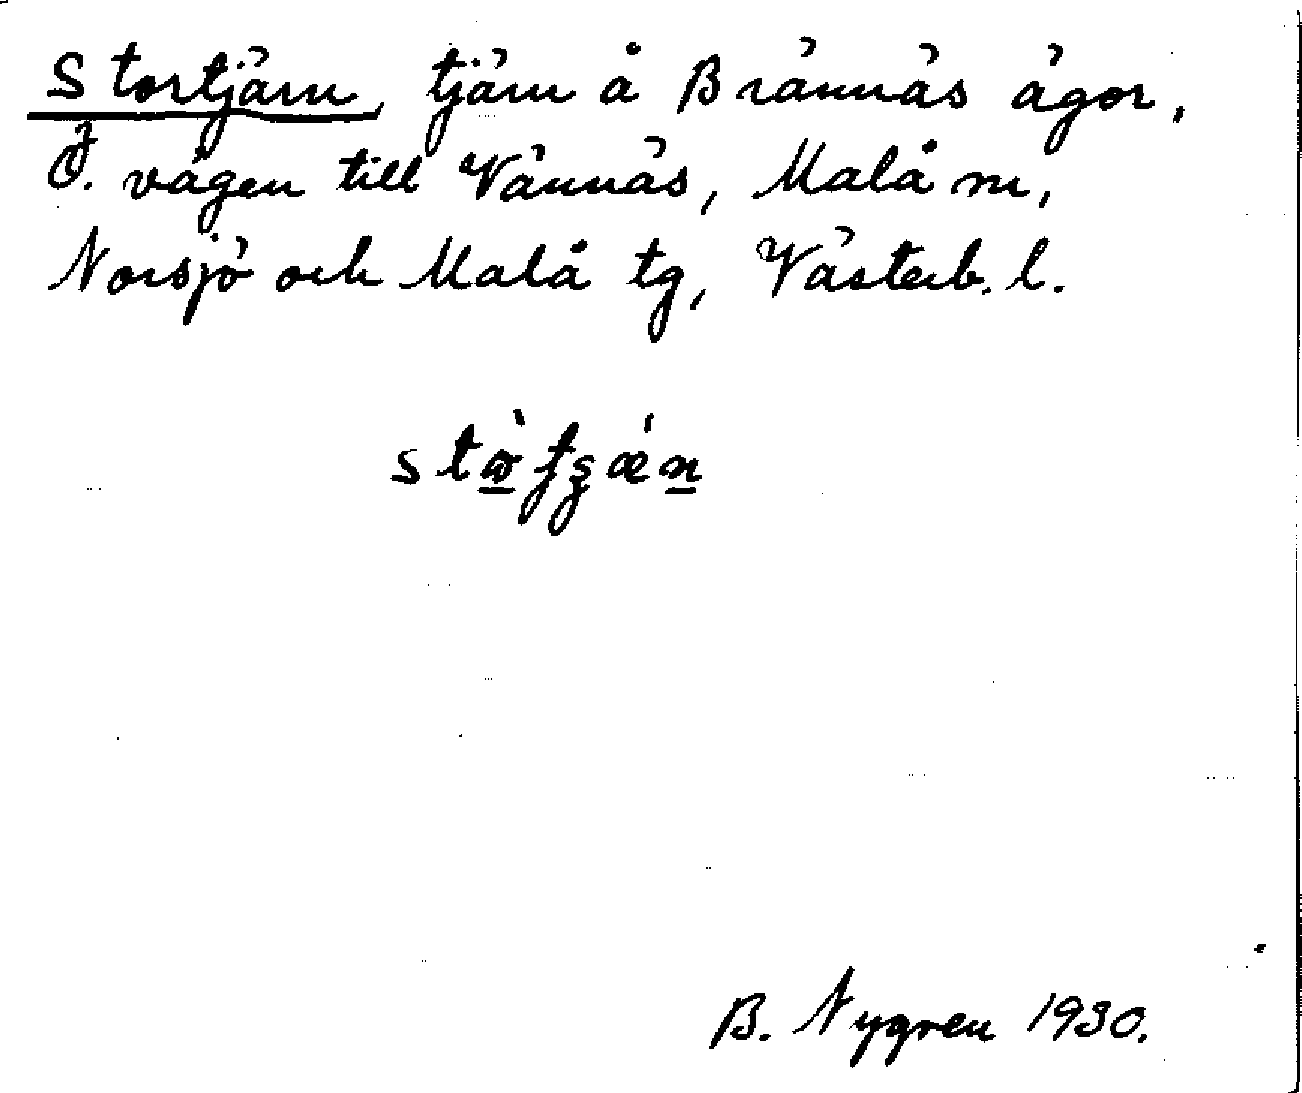 Stortjärn, tjärn å Brännäs ägor,
Ö. vägen till Vännäs, Malå sn,
Norsjö och Malå tg, Västerb. l.
B. Nygren 1930.